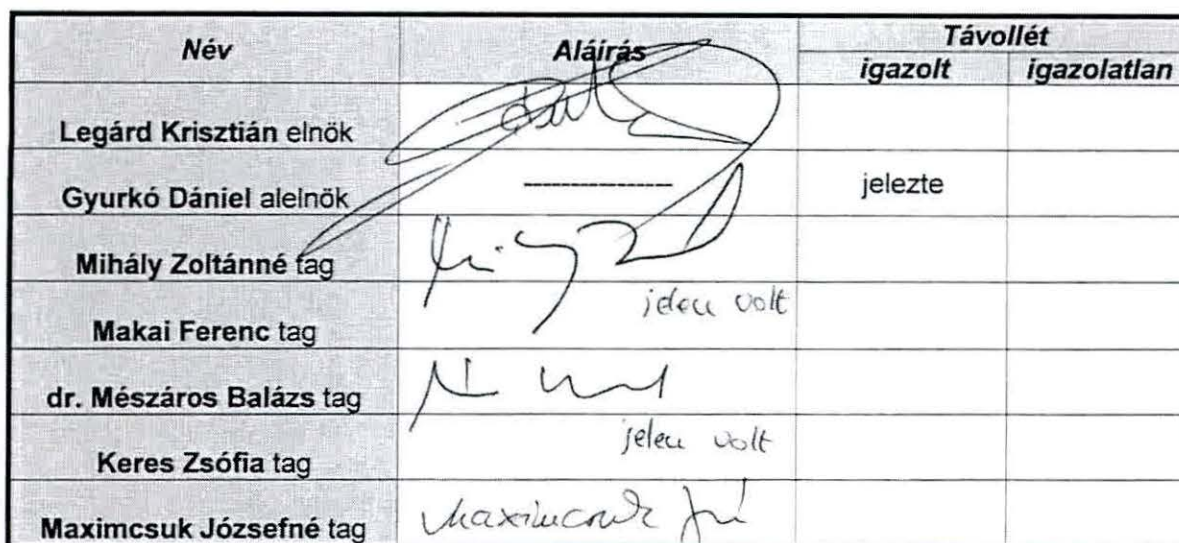 Név Aláírás Távollét
igazolt igazolatlan
Legárd Krisztián elnök
Gyurkó Dániel alelnök ---------------- jelezte
Mihály Zoltánné tag
Makai Ferenc tag jelen volt
dr. Mészáros Balázs tag
Keres Zsófia tag jelen volt
Maximcsuk Józsefné tag Maximcsuk Jné